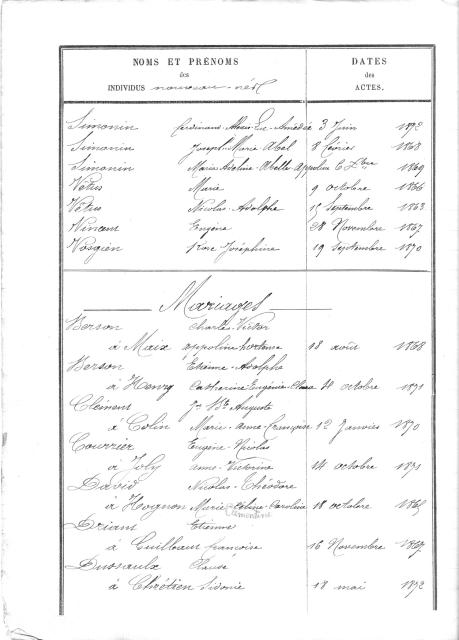 NOMS ET PRÉNOMS DATES
des des
INDIVIDUS nouveau-nés ACTES.
Simonin Ferdinand-Marie-Luc-Amédée 3 Juin 1872
Simonin Joseph-Marie Abel 8 février 1868
Simonin Marie-Adeline-Abelle-Appoline 6 Xbre 1869
Vétus Marie 9 octobre 1866
Vétus Nicolas-Adolphe 15 Septembre 1863
Vincent Eugène 28 Novembre 1867
Vosgien Rose Joséphine 19 Septembre 1870
Mariages
Berson Charles-Victor
à Maix Appoline hortense 18 août 1868
Berson Etienne-Adolphe
à Henry Catherine Eugénie-Clara 20 octobre 1871
Clément Jn Bte Auguste
à Colin Marie-Anne-françoise 12 Janvier 1870
Courrier Eugène-Nicolas
à Joly Anne-Victorine 14 octobre 1871
David Nicolas-Théodore
à Hognon Marie-Céline-Caroline 18 octobre 1865
Driant Etienne
à Guillaum françoise 16 Novembre 1867
Dussaulx Claude
à Chrétien Sidonie 18 mai 1872